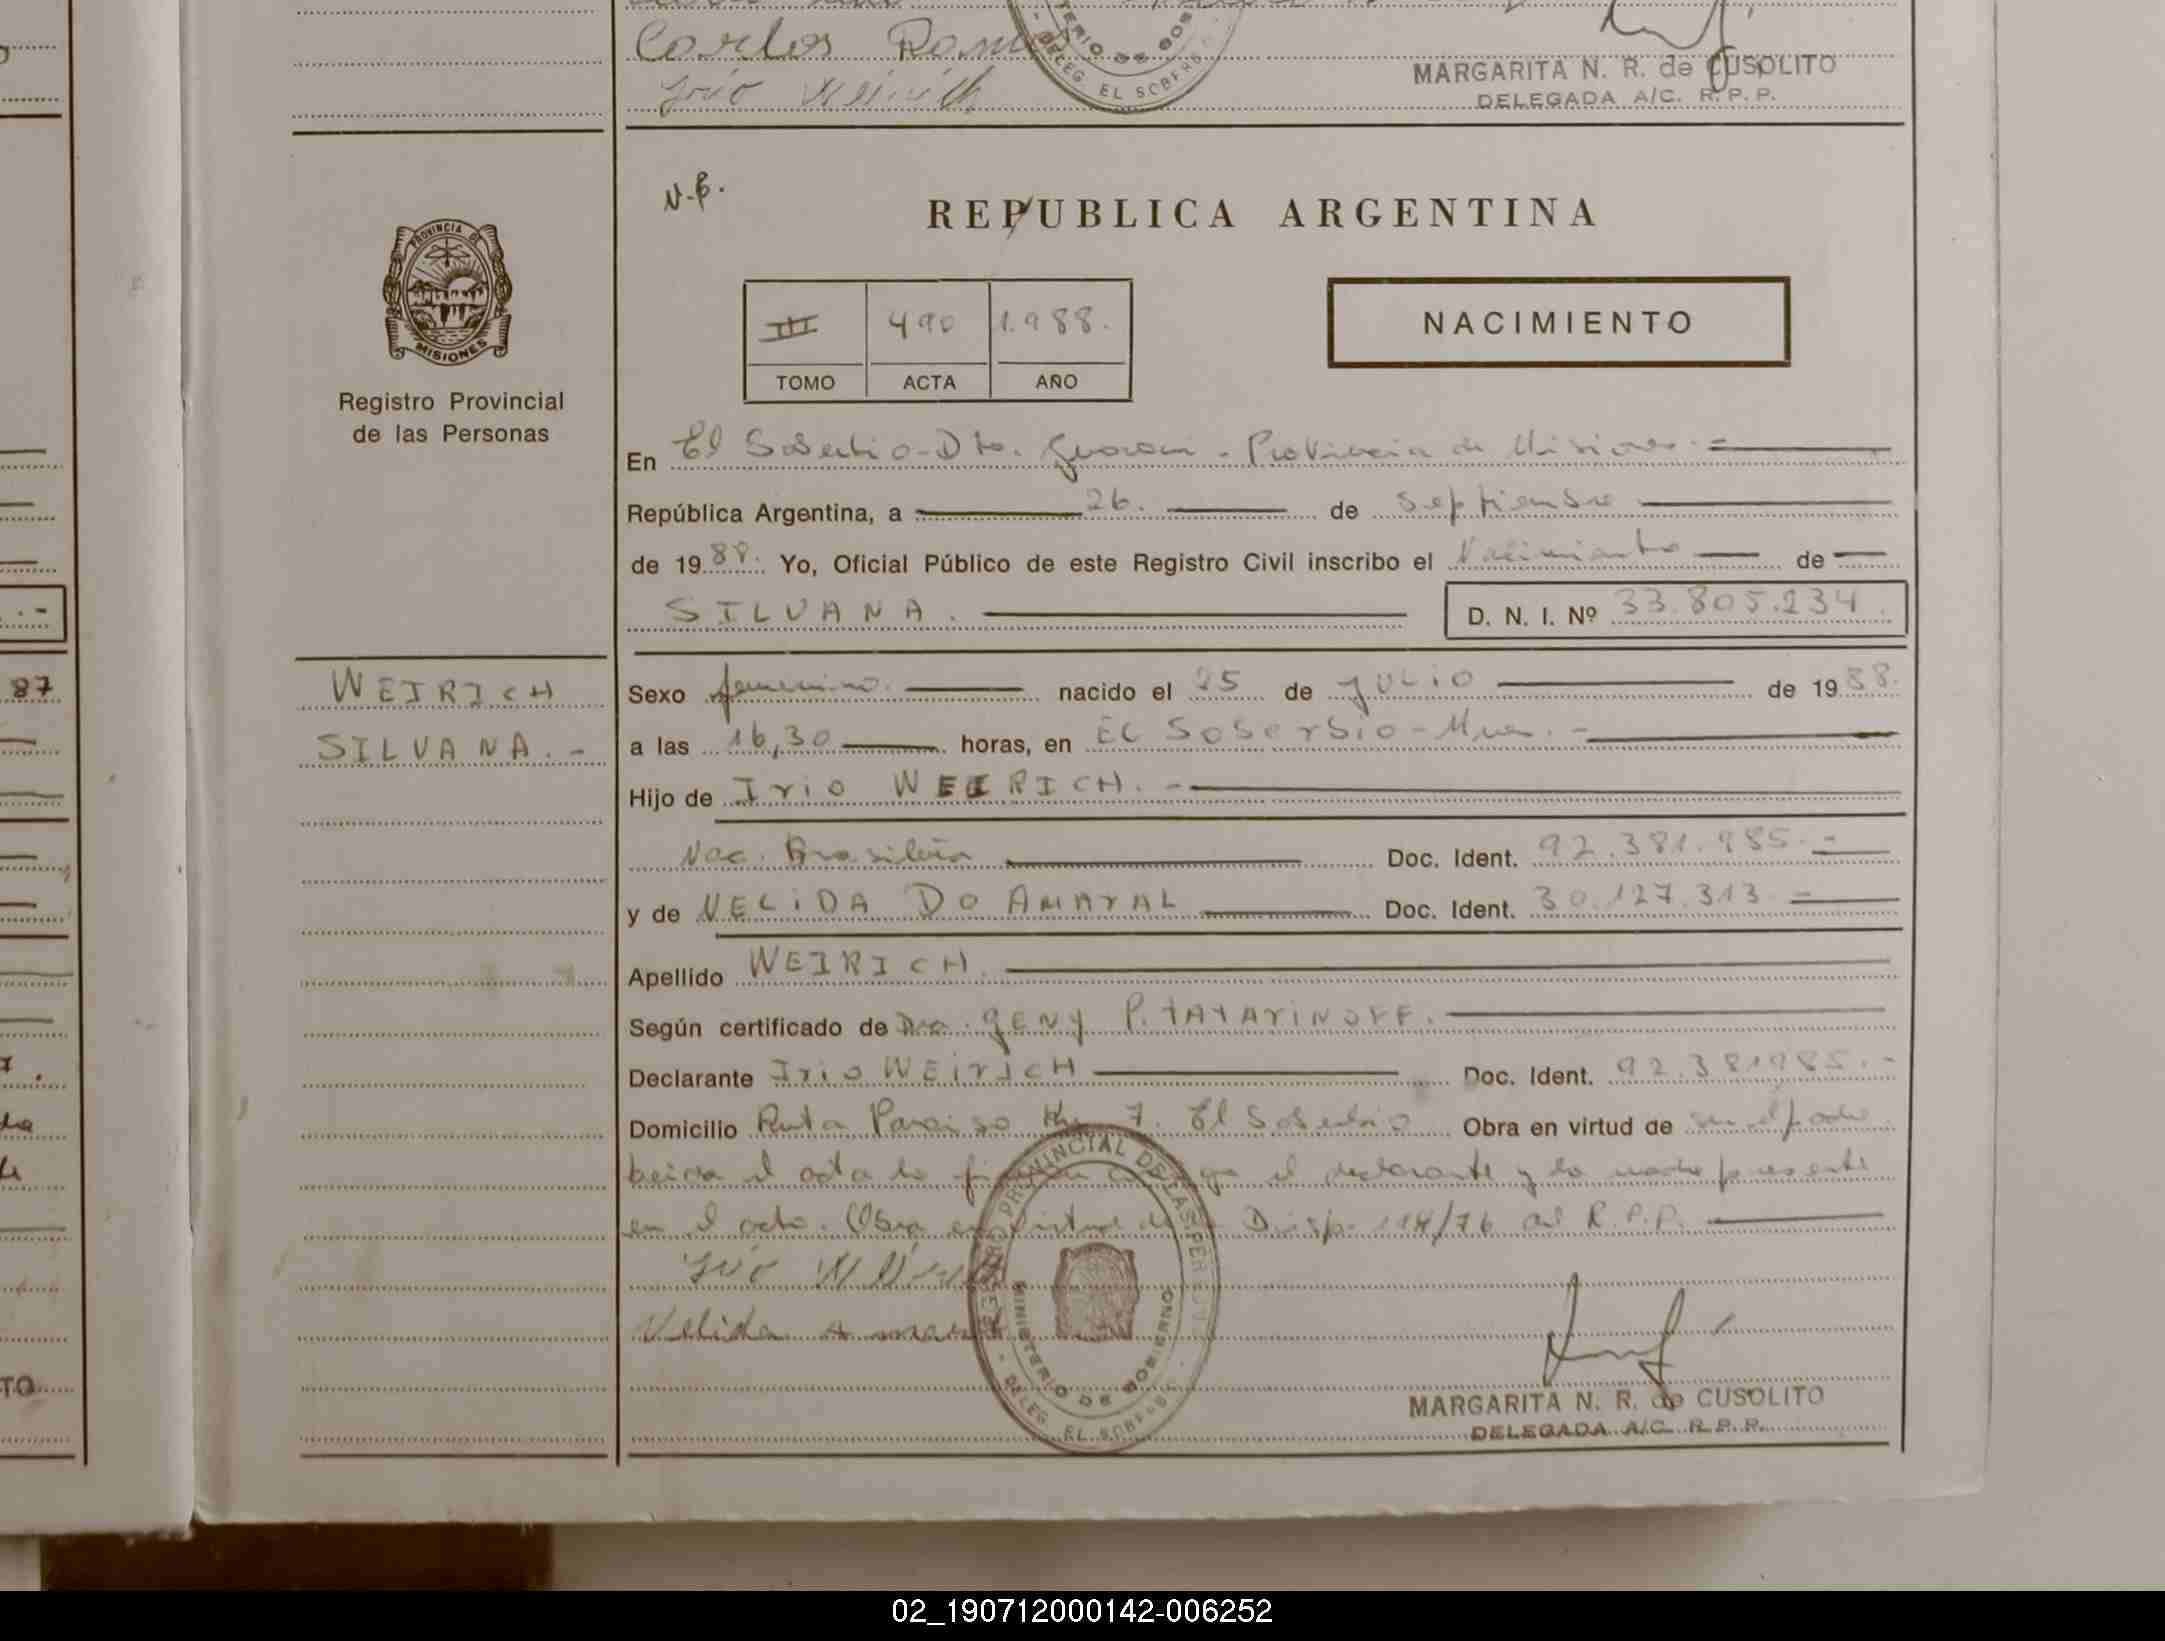 Carlos Ram
Irio Weirich
TERIO DE GOB
DELEG. EL SOBERB
MARGARITA N. R. de CUSOLITO
DELEGADA A/C. R. P. P.
N.B.
REPUBLICA ARGENTINA
PROVINCIA DE
MISIONES
Registro Provincial
de las Personas
III 490 1.988.
TOMO ACTA AÑO
NACIMIENTO
En El Soberbio-Dto. Guarani - Provincia de Misiones.-
República Argentina, a 26. de septiembre
de 1988. Yo, Oficial Público de este Registro Civil inscribo el Nacimiento de
SILVANA. D. N. I. Nº 33.805.234.
87
WEIRICH
SILVANA.-
Sexo femenino. nacido el 25 de JULIO de 1988.
a las 16,30 horas, en EL SOBerbio-Mnes.-
Hijo de Irio WEIRICH.-
Nac. Brasileña Doc. Ident. 92.381.985.-
y de NELIDA DO AMARAL Doc. Ident. 30.127.313.-
Apellido WEIRICH.
Según certificado de Dra. GENY P. TATARINOFF.
Declarante Irio WEIRICH Doc. Ident. 92.381985.-
Domicilio Ruta Paraiso Km 7. El Soberbio Obra en virtud de
el acta la el declarante y la madre presente
en el acto. Obra en virtud de Disp. 114/76 del R.P.P.
Irio
Nelida Amaral
REGISTRO PROVINCIAL DE LAS PERSONAS
MINISTERIO DE GOBIERNO
- DELEG. EL SOBERB
MARGARITA N. R. de CUSOLITO
DELEGADA A/C. R. P. P.
TO
02_190712000142-006252